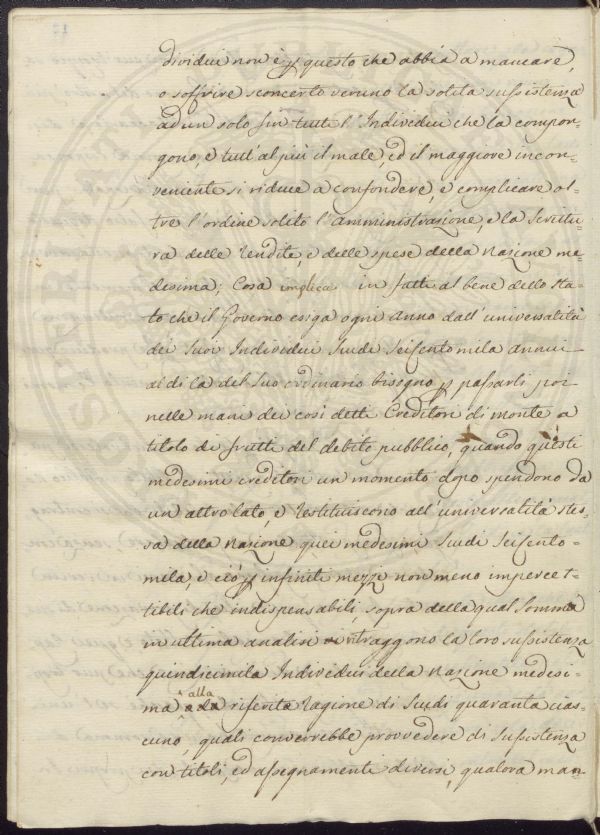 dividui non è p questo che abbia a mancare,
o soffrire sconcerto veruno la solita sussistenza
ad un solo fra tutti l'Individui che la compon-
gono, e tutt'al più il male, ed il maggiore incon-
veniente si riduce a confondere, e complicare ol-
tre l'ordine solito l'amministrazione, e la Scrittu-
ra delle Rendite, e delle spese della Nazione me-
desima; Cosa implica in fatti al bene dello sta-
to che il Governo esiga ogni Anno dall'universalità
dei suoi Individui Scudi Seicento mila annui
al di là del suo ordinario bisogno p passarli poi
nelle mani dei così detti Creditori di monte a
titolo di frutti del debito pubblico, quando questi
medesimi creditori un momento dopo spendono da
un altro lato, e Restituiscono all'universalità stes-
sa della Nazione quei medesimi Scudi Seicento-
mila, e ciò p infiniti mezzi non meno impercet-
tibili che indispensabili, sopra della qual Somma
in ultima analisi ritraggono la loro sussistenza
quindicimila Individui della Nazione medesi-
ma alla riferita Ragione di Scudi quaranta cias-
cuno, quali converrebbe provvedere di sussistenza
con titoli, ed assegnamenti diversi, qualora man-